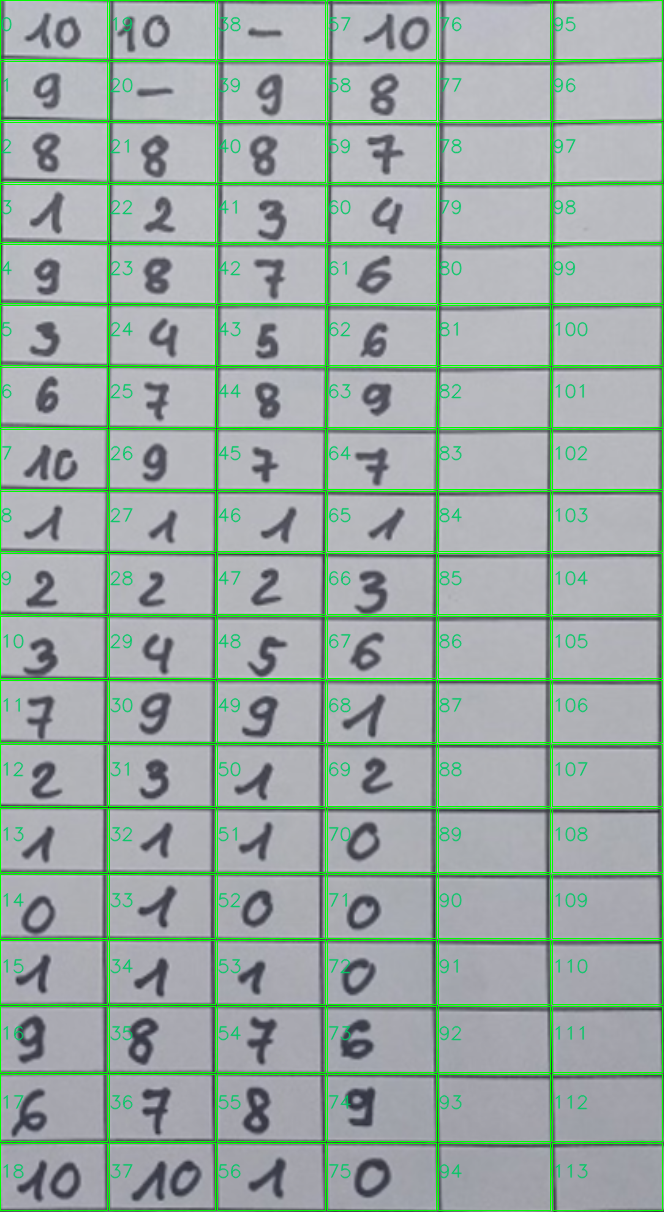 0 10 19 10 38 – 57 10 76 95
1 9 20 – 39 9 58 8 77 96
2 8 21 8 40 8 59 7 78 97
3 1 22 2 41 3 60 4 79 98
4 9 23 8 42 7 61 6 80 99
5 3 24 4 43 5 62 6 81 100
6 6 25 7 44 8 63 9 82 101
7 10 26 9 45 7 64 7 83 102
8 1 27 1 46 1 65 1 84 103
9 2 28 2 47 2 66 3 85 104
10 3 29 4 48 5 67 6 86 105
11 7 30 9 49 9 68 1 87 106
12 2 31 3 50 1 69 2 88 107
13 1 32 1 51 1 70 0 89 108
14 0 33 1 52 0 71 0 90 109
15 1 34 1 53 1 72 0 91 110
16 9 35 8 54 7 73 6 92 111
17 6 36 7 55 8 74 9 93 112
18 10 37 10 56 1 75 0 94 113